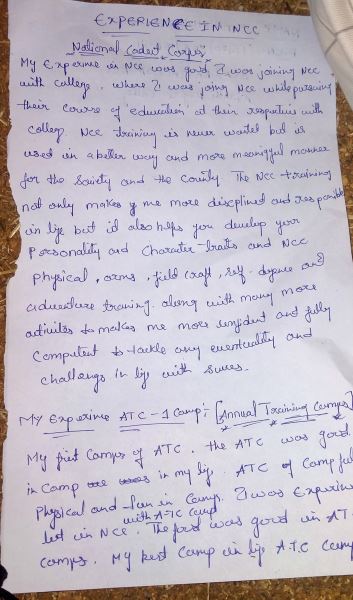 EXPERIENCE IN NCC
National Cadet Corps
My Experience in NCC was good I was joining NCC
with college. where I was joing NCC while pursuing
their course of "education" at their respective with
college. NCC training is never wasted but is
used in a better way and more meaningful manner
for the Society and the County The NCC training
not only makes me more discplined and responsible
in life but id also helps you develop your
Personality and Character-traits and NCC
Physical, arms, field craft, self-defence and
adventure training. along with many more
activites to makes me more confident and fully
Competent to tackle any eventuality and
challenge in life with
MY Experience ATC-1 Camp: [Annual Training Camps]
My first Camps of ATC. the ATC was good
in Camp in my life. ATC of Camp full
Physical and fun in Camp. I was Experience
with ATC Camp
let in NCC. The food was good in AT
Camps. My best Camp in life A.T.C Camp